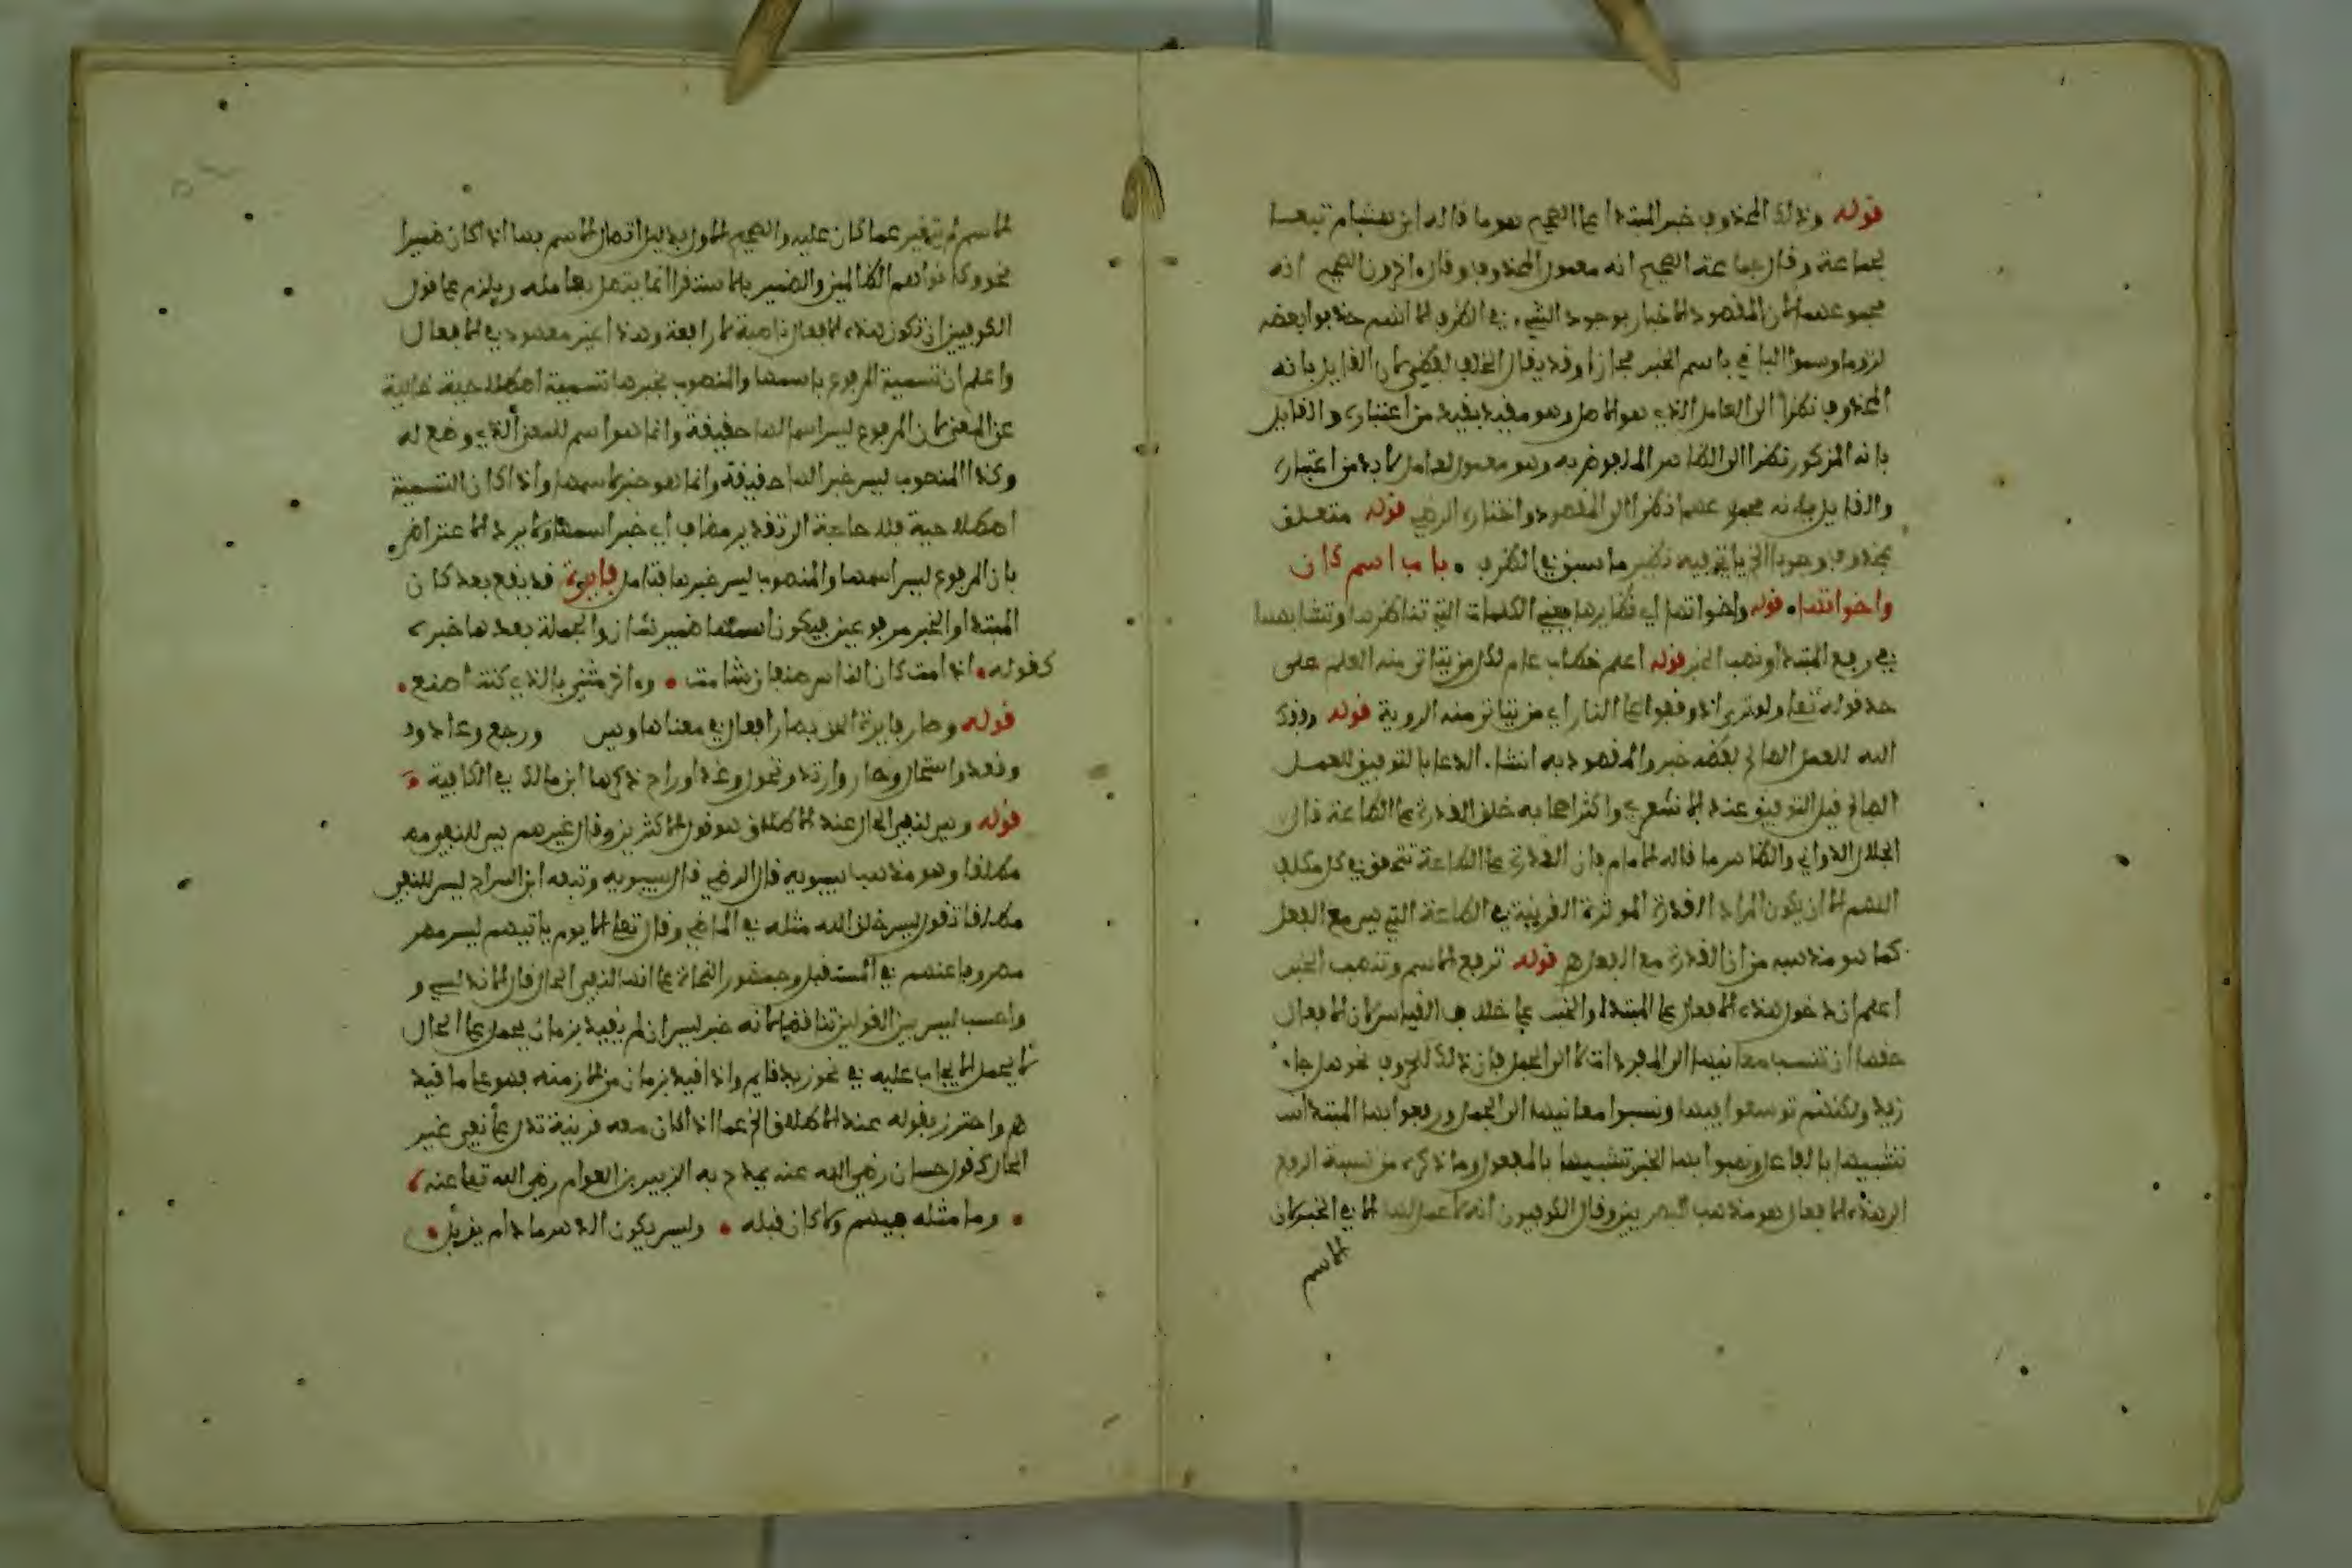 قوله وذلك المحذوف خبر المبتدا على الصحيح هو ما قاله ابن هشام تبعا
لجماعة وقال جماعة الصحيح انه معمول المحذوف وقال اخرون الصحيح انه
مجموعهما لان المقصود الاخبار بوجود الشيء في الظرف الا انهم حذفوا بعضه
لزوما وسموا الباقي باسم الخبر مجازا وقد يقال الخلاف لفظي لان القايل بانه
المحذوف نظرا الى العامل الذي هو الاصل وهو مقيد بقيد من اعتباره والقايل
بانه المذكور نظرا الى الظاهر الملفوظ به وهو معمول لعامل لا بد من اعتباره
والقايل بانه مجموعهما نظرا الى المقصود واختاره الرضي قوله متعلق
بمحذوف وجوبا الخ ياتي فيه نظير ما سبق في الظرف باب اسم كان
واخواتها قوله واخواتها اي نظايرها يعني الكلمات التي تناظرها وتشابهها
في رفع المبتدا ونصب الخبر قوله اعلم خطاب عام لكل من يتاتى منه العلم على
حد قوله تعالى ولو ترى اذ وقفوا على النار اي من يتاتى منه الروية قوله وفقك
الله للعمل الصالح لفظه خبر والمقصود به انشاء الدعا بالتوفيق للعمل
الصالح قيل التوفيق عند الاشعري واكثر اصحابه خلق القدرة على الطاعة قال
الجلال الدواني والظاهر ما قاله الامام فان القدرة على الطاعة تتحقق في كل مكلف
اللهم الا ان يكون المراد القدرة الموثرة القريبة في الطاعة التي هي مع الفعل
كما هو مذهبه من ان القدرة مع الفعل اهـ قوله ترفع الاسم وتنصب الخبر
اعلم ان دخول هذه الافعال على المبتدا والخبر على خلاف القياس لان الافعال
حقها ان تنسب معانيها الى المفردات لا الى الجمل فان ذلك للحروف نحو هل جاء
زيد ولكنهم توسعوا فيها ونسبوا معانيها الى الجمل ورفعوا بها المبتدا
تشبيها بالفاعل ونصبوا بها الخبر تشبيها بالمفعول وما ذكره من نسبة الرفع
الى هذه الافعال هو مذهب البصريين وقال الكوفيون انه لا عمل لها الا في الخبر لان
الاسم
الاسم لم يتغير عما كان عليه والصحيح الاول بدليل اتصال الاسم بها اذا كان ضميرا
نحو وكانوا هم الظالمين والضمير بالاستقرا انما يتصل بعامله ويلزم على قول
الكوفيين ان تكون هذه الافعال ناصبة لا رافعة وهذا غير معهود في الافعال
واعلم ان تسمية المرفوع باسمها والمنصوب بخبرها تسمية اصطلاحية خالية
عن المعنى لان المرفوع ليس اسما لها حقيقة وانما هو اسم للمعنى الذي وضع له
وكذا المنصوب ليس خبرا لها حقيقة وانما هو خبر لاسمها واذا كان التسمية
اصطلاحية فلا حاجة الى تقدير مضاف اي خبر اسمها ولا يرد الاعتراض
بان المرفوع ليس اسمها والمنصوب ليس خبرها فتامل فايدة قد يقع بعد كان
المبتدا والخبر مرفوعين فيكون اسمها ضمير شان والجملة بعدها خبره
كقوله اذا مت كان الناس صنفان شامت واخر مثن بالذي كنت اصنع
قوله وصار فايدة الحق بصار افعال في معناها وهي ورجع وعاد و
وقعد واستحال وحار وارتد وتحول وغدا وراح ذكرها ابن مالك في الكافية
قوله وليس لنفي الحال عند الاطلاق هو قول الاكثرين وقال غيرهم هي للنفي
مطلقا وهو مذهب سيبويه قال الرضي قال سيبويه وتبعه ابن السراج ليس للنفي
مطلقا تقول ليس خلق الله مثله في الماضي وقال تعالى الا يوم ياتيهم ليس
مصروفا عنهم في المستقبل وجمهور النحاة على انها لنفي الحال قال الاندلسي و
ليس بين القولين تناقض لانه خبر ليس ان لم يقيد بزمان يحمل على الحال
كما يحمل الايجاب عليه في نحو زيد قايم واذا قيد بزمان من الازمنة فهو على ما قيد
اهـ واحترز بقوله عند الاطلاق الخ عما اذا كان معه قرينة تدل على نفي غير
الحال كقول حسان رضي الله عنه يمدح به الزبير بن العوام رضي الله تعالى عنه
وما مثله فيهم ولا كان قبله وليس يكون الدهر ما دام يذبل